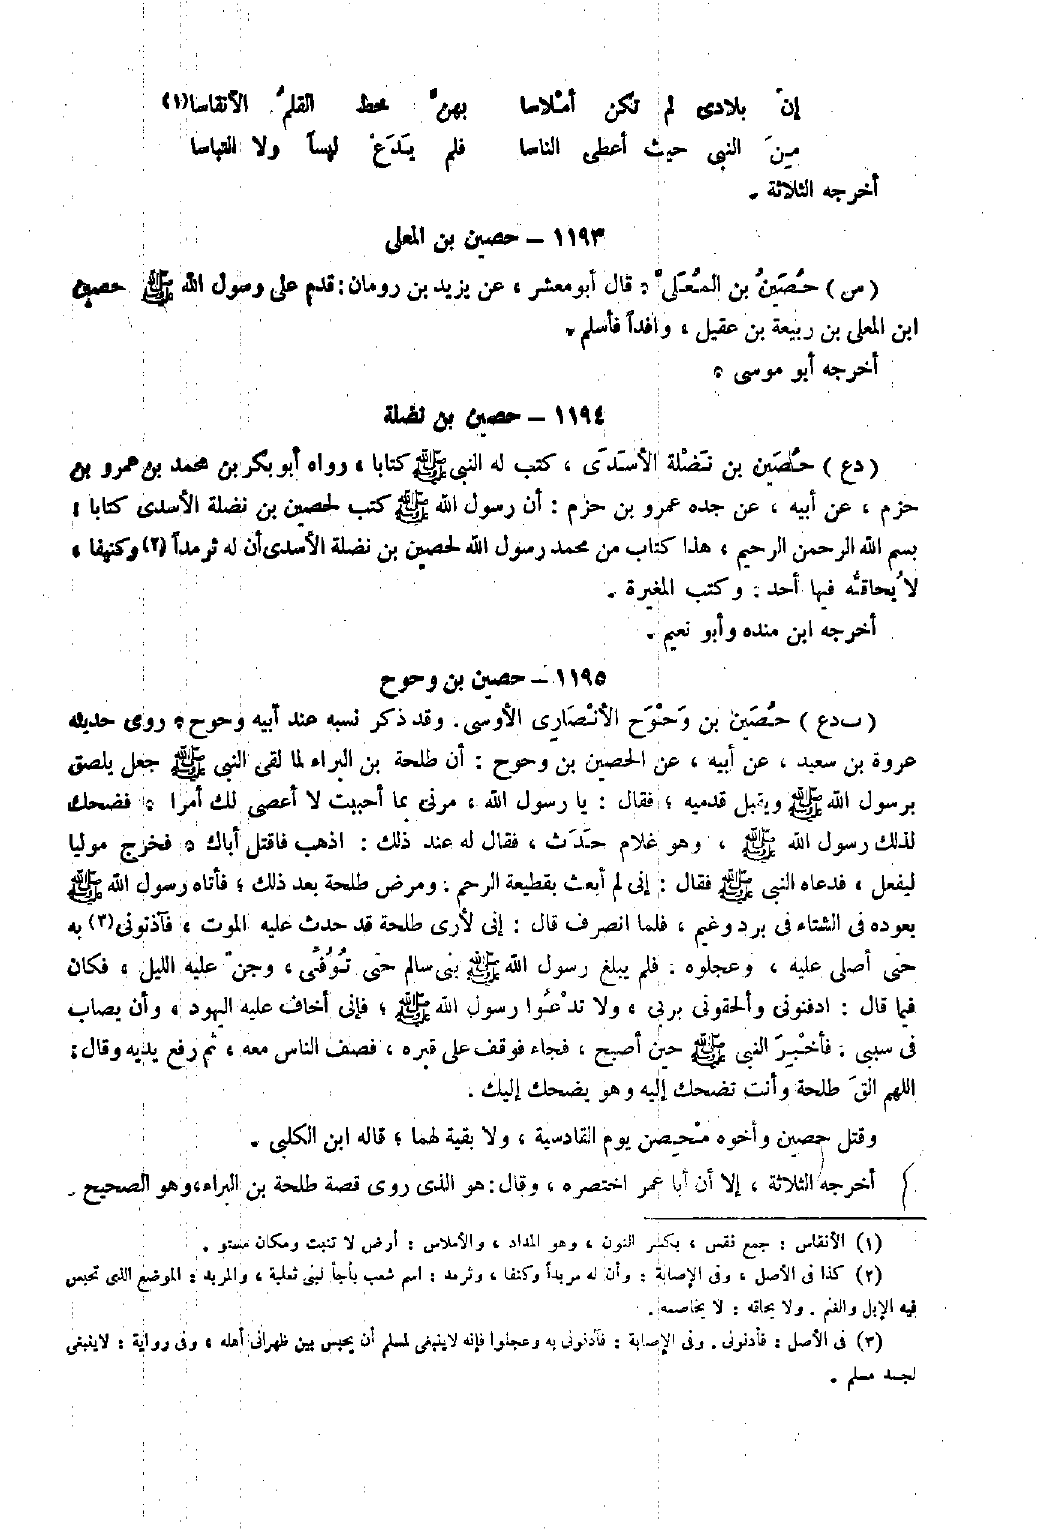 إنَّ بلادى لم تكن أمْلاسا بهنَّ خط القلمُ الأنقاسا(١)
مِنَ النبى حيث أعطى الناسا فلم يَدَعْ لبساً ولا التباسا
أخرجه الثلاثة .
١١٩٣ – حصين بن المعلى
(س) حُصَينُ بن المُعَلىَّ . قال أبو معشر ، عن يزيد بن رومان : قدم على رسول الله ﷺ حصين
ابن المعلى بن ربيعة بن عقيل ، وافداً فأسلم .
أخرجه أبو موسى .
١١٩٤ – حصين بن نضلة
(دع) حُصَين بن نَضْلة الأسَدَى ، كتب له النبى ﷺ كتابا ، رواه أبو بكر بن محمد بن عمرو بن
حزم ، عن أبيه ، عن جده عمرو بن حزم : أن رسول الله ﷺ كتب لحصين بن نضلة الأسدى كتابا :
بسم الله الرحمن الرحيم ، هذا كتاب من محمد رسول الله لحصين بن نضلة الأسدى أن له ثرمداً (٢) وكنهفا ،
لا يُحاقُّه فيها أحد : وكتب المغيرة .
أخرجه ابن منده وأبو نعيم .
١١٩٥ – حصين بن وحوح
(ب دع) حُصَين بن وَحْوَح الأنْصَارى الأوسى . وقد ذكر نسبه عند أبيه وحوح . روى حديثه
عروة بن سعيد ، عن أبيه ، عن الحصين بن وحوح : أن طلحة بن البراء لما لقى النبى ﷺ جعل يلصق
برسول الله ﷺ ويقبل قدميه ؛ فقال : يا رسول الله ، مرنى بما أحببت لا أعصى لك أمرا . فضحك
لذلك رسول الله ﷺ ، وهو غلام حَدَث ، فقال له عند ذلك : اذهب فاقتل أباك . فخرج موليا
ليفعل ، فدعاه النبى ﷺ فقال : إنى لم أبعث بقطيعة الرحم : ومرض طلحة بعد ذلك ؛ فأتاه رسول الله ﷺ
يعوده فى الشتاء فى برد وغيم ، فلما انصرف قال : إنى لأرى طلحة قد حدث عليه الموت ، فآذنونى(٣) به
حتى أصلى عليه ، وعجلوه . فلم يبلغ رسول الله ﷺ بنى سالم حتى تُوُفِّى ، وجنَّ عليه الليل ، فكان
فيما قال : ادفنونى وألحقونى بربى ، ولا تدْعُوا رسول الله ﷺ ؛ فإنى أخاف عليه اليهود ، وأن يصاب
فى سببى . فأخْبِرَ النبى ﷺ حين أصبح ، فجاء فوقف على قبره ، فصف الناس معه ، ثم رفع يديه وقال :
اللهم القَ طلحة وأنت تضحك إليه وهو يضحك إليك .
وقتل حصين وأخوه مُحَيصن يوم القادسية ، ولا بقية لهما ؛ قاله ابن الكلبى .
أخرجه الثلاثة ، إلا أن أبا عمر اختصره ، وقال : هو الذى روى قصة طلحة بن البراء، وهو الصحيح .
(١) الأنقاس : جمع نقس ، بكسر النون ، وهو المداد ، والأملاس : أرض لا تنبت ومكان مستو .
(٢) كذا فى الأصل ، وفى الإصابة : وأن له مربداً وكنفا ، وثرمد : اسم شعب بأجأ لبنى ثعلبة ، والمربد : الموضع الذى تحبس
فيه الإبل والغنم . ولا يحاقه : لا يخاصمه .
(٣) فى الأصل : فأدنونى . وفى الإصابة : فآذنونى به وعجلوا فإنه لا ينبغى لمسلم أن يحبس بين ظهرانى أهله ، وفى رواية : لا ينبغى
لجسد مسلم .